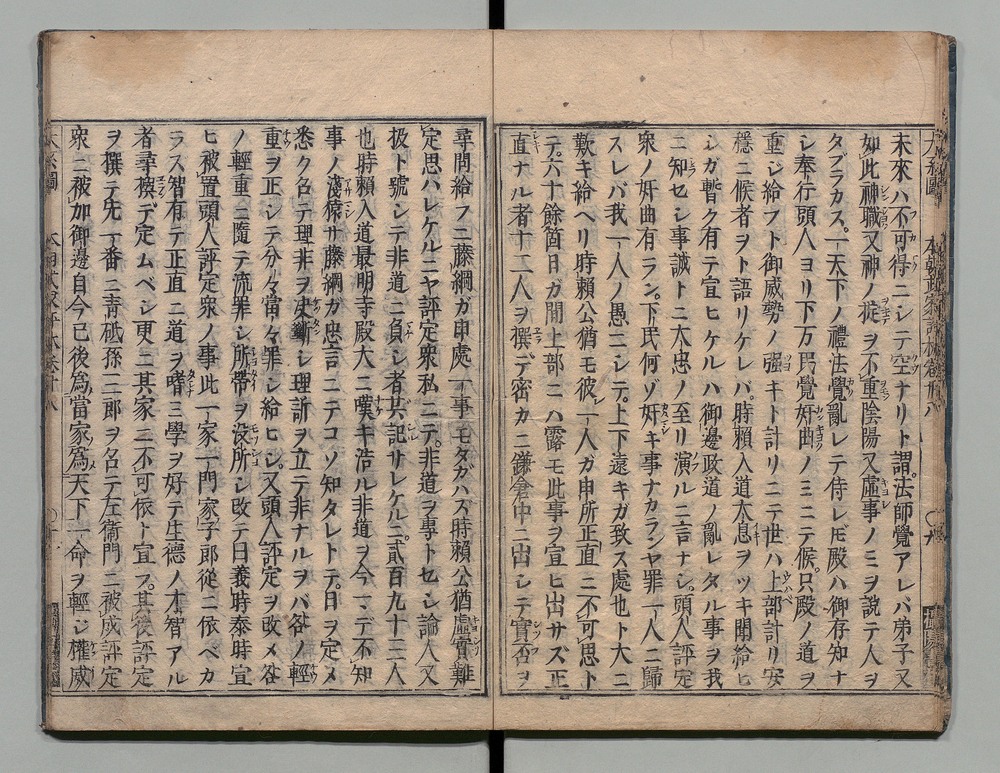 未來ハ不可得ニシテ空ナリト謂。法師覺アレバ弟子又
如此神職又神ノ掟ヲ不重陰陽又虚事ノミヲ説テ人ヲ
タブラカス。一天下ノ禮法覺亂レテ侍レ𪜈殿ハ御存知ナ
シ奉行頭人ヨリ下万民覺奸曲ノミニテ候。只殿ノ道ヲ
重シ給フト御威勢ノ强キト計リニテ世ハ上部計リ安
穩ニ候者ヲト語リケレバ。時頼入道大息ヲツキ聞給ヒ
シガ暫ク有テ宣ヒケルハ御邊政道ノ亂レタル事ヲ我
ニ知セシ事誠ト二大忠ノ至リ演ルニ言ナシ。頭人評定
衆ノ奸曲有ラン。下民何ゾ奸キ事ナカランヤ罪一人ニ歸
スレバ我一人ノ愚ニシテ。上下遠キガ致ス處也ト大ニ
歎キ給ヘリ時頼公猶モ彼一人ガ申所正直ニ不可思ト
テ。六十餘箇日ガ間上部ニハ露モ此事ヲ宣ヒ出サズ正
直ナル者十二人ヲ撰デ密カニ鎌倉中ニ出シテ實否ヲ
尋問給フニ藤綱ガ申處一事モタガハズ時頼公猶虚實難
定思ハレケルニヤ評定衆私ニテ。非道ヲ專トセシ論人又
扱ト號シテ非道ニ負シ者共記サレケルニ。貳百九十三人
也時頼入道最明寺殿大ニ嘆キ浩ル非道ヲ今マデ不知
事ノ淺猿サ藤綱ガ忠言ニテコソ知タレトテ。日ヲ定メ
悉ク召テ理非ヲ決斷シ理訴ヲ立テ非ナルヲバ咎ノ輕
重ヲ正シテ分々當々罪シ給ヒシ。又頭人評定ヲ改メ咎
ノ輕重ニ隨テ流罪シ所帶ヲ没所シ改テ曰義時泰時宣
ヒ被置頭人評定衆ノ事此一家一門家子郎從ニ依ベカ
ラズ智有テ正直ニ道ヲ嗜三學ヲ好テ生德ノ才智アル
者尋樉デ定ムベシ更ニ其家ニ不可依ト宣フ。其後評定
ヲ撰テ先一番ニ青砥孫三郎ヲ召テ左衞門ニ被成評定
衆ニ被加御邊自今已後爲當家爲天下一命ヲ輕シ權威